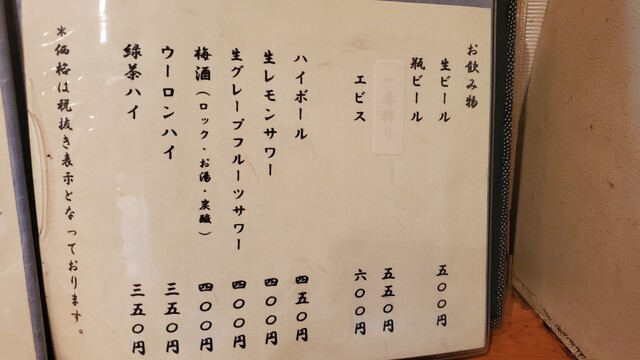 お飲み物
生ビール 五〇〇円
瓶ビール
一番搾り 五五〇円
エビス 六〇〇円
ハイボール 四五〇円
生レモンサワー 四〇〇円
生グレープフルーツサワー 四〇〇円
梅酒（ロック・お湯・炭酸） 四〇〇円
ウーロンハイ 三五〇円
緑茶ハイ 三五〇円
＊価格は税抜き表示となっております。